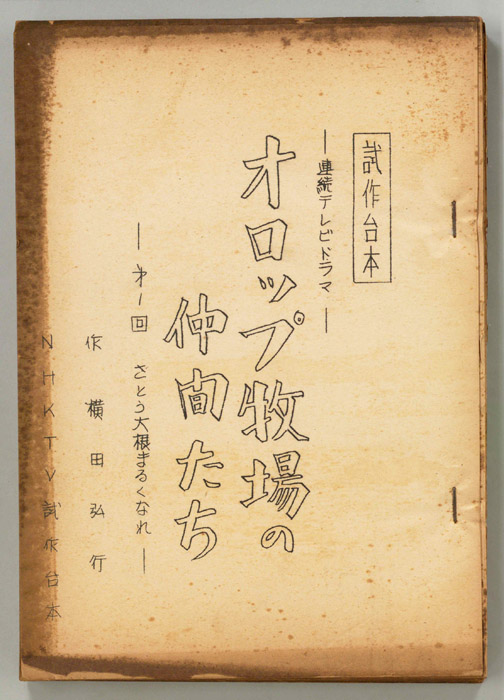 試作台本
―連続テレビドラマ―
オロップ牧場の
仲間たち
―第一回 さとう大根まるくなれ―
作 横田弘行
NHKTV試作台本